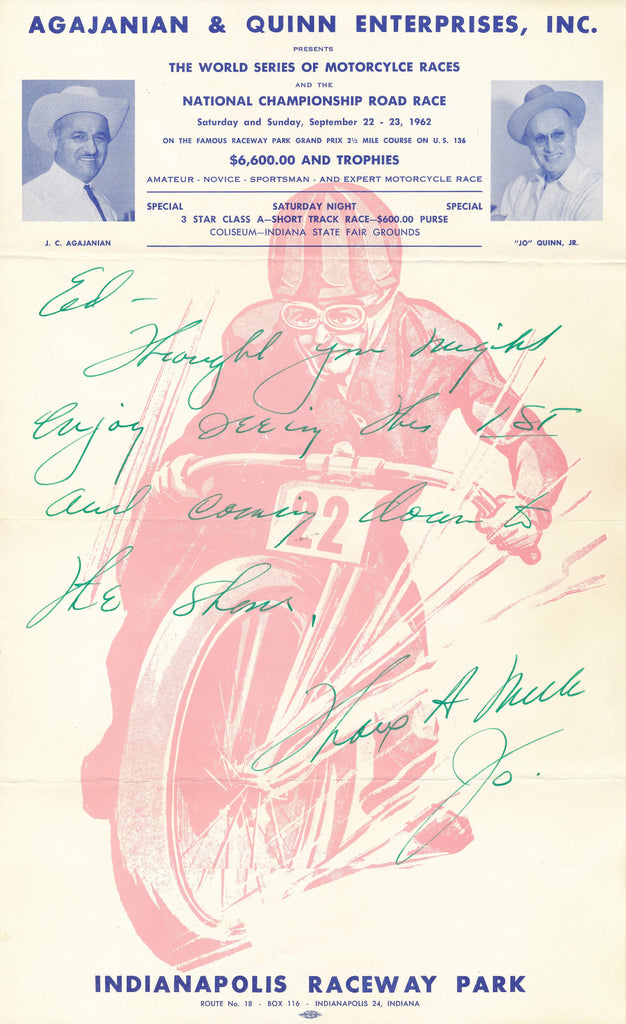 AGAJANIAN & QUINN ENTERPRISES, INC.
PRESENTS
THE WORLD SERIES OF MOTORCYLCE RACES
AND THE
NATIONAL CHAMPIONSHIP ROAD RACE
Saturday and Sunday, September 22 - 23, 1962
ON THE FAMOUS RACEWAY PARK GRAND PRIX 2½ MILE COURSE ON U. S. 136
$6,600.00 AND TROPHIES
AMATEUR - NOVICE - SPORTSMAN - AND EXPERT MOTORCYCLE RACE
SPECIAL SATURDAY NIGHT SPECIAL
3 STAR CLASS A—SHORT TRACK RACE—$600.00 PURSE
COLISEUM—INDIANA STATE FAIR GROUNDS
J. C. AGAJANIAN
"JO" QUINN, JR.
Ed -
Thought you might
enjoy seeing this 1ST
and coming down to
the show.
22
Thanx A
Jo.
INDIANAPOLIS RACEWAY PARK
ROUTE No. 18 - BOX 116 - INDIANAPOLIS 24, INDIANA